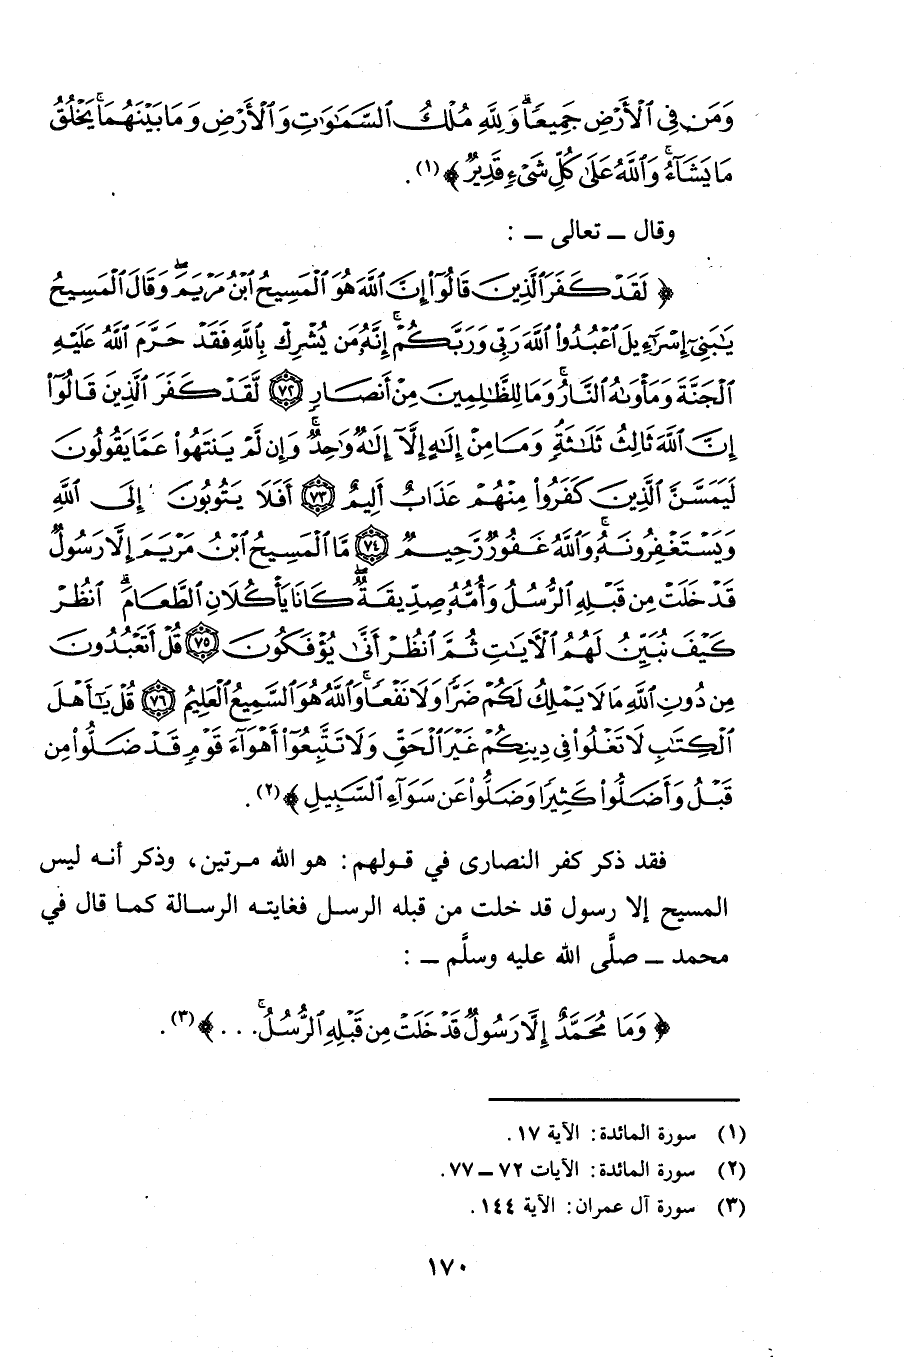 وَمَن فِي ٱلْأَرْضِ جَمِيعًاۗ وَلِلَّهِ مُلْكُ ٱلسَّمَٰوَٰتِ وَٱلْأَرْضِ وَمَا بَيْنَهُمَاۚ يَخْلُقُ
مَا يَشَآءُۚ وَٱللَّهُ عَلَىٰ كُلِّ شَىْءٍ قَدِيرٌ ﴾(١).
وقال ـ تعالى ـ :
﴿ لَقَدْ كَفَرَ ٱلَّذِينَ قَالُوٓاْ إِنَّ ٱللَّهَ هُوَ ٱلْمَسِيحُ ٱبْنُ مَرْيَمَۖ وَقَالَ ٱلْمَسِيحُ
يَٰبَنِىٓ إِسْرَٰٓءِيلَ ٱعْبُدُواْ ٱللَّهَ رَبِّى وَرَبَّكُمْۚ إِنَّهُۥ مَن يُشْرِكْ بِٱللَّهِ فَقَدْ حَرَّمَ ٱللَّهُ عَلَيْهِ
ٱلْجَنَّةَ وَمَأْوَىٰهُ ٱلنَّارُۚ وَمَا لِلظَّٰلِمِينَ مِنْ أَنصَارٍ ٧٢ لَّقَدْ كَفَرَ ٱلَّذِينَ قَالُوٓاْ
إِنَّ ٱللَّهَ ثَالِثُ ثَلَٰثَةٍۘ وَمَا مِنْ إِلَٰهٍ إِلَّآ إِلَٰهٌ وَٰحِدٌۚ وَإِن لَّمْ يَنتَهُواْ عَمَّا يَقُولُونَ
لَيَمَسَّنَّ ٱلَّذِينَ كَفَرُواْ مِنْهُمْ عَذَابٌ أَلِيمٌ ٧٣ أَفَلَا يَتُوبُونَ إِلَى ٱللَّهِ
وَيَسْتَغْفِرُونَهُۥۚ وَٱللَّهُ غَفُورٌ رَّحِيمٌ ٧٤ مَّا ٱلْمَسِيحُ ٱبْنُ مَرْيَمَ إِلَّا رَسُولٌ
قَدْ خَلَتْ مِن قَبْلِهِ ٱلرُّسُلُ وَأُمُّهُۥ صِدِّيقَةٌۖ كَانَا يَأْكُلَانِ ٱلطَّعَامَۗ ٱنظُرْ
كَيْفَ نُبَيِّنُ لَهُمُ ٱلْآيَٰتِ ثُمَّ ٱنظُرْ أَنَّىٰ يُؤْفَكُونَ ٧٥ قُلْ أَتَعْبُدُونَ
مِن دُونِ ٱللَّهِ مَا لَا يَمْلِكُ لَكُمْ ضَرًّا وَلَا نَفْعًاۚ وَٱللَّهُ هُوَ ٱلسَّمِيعُ ٱلْعَلِيمُ ٧٦ قُلْ يَٰٓأَهْلَ
ٱلْكِتَٰبِ لَا تَغْلُواْ فِى دِينِكُمْ غَيْرَ ٱلْحَقِّ وَلَا تَتَّبِعُوٓاْ أَهْوَآءَ قَوْمٍ قَدْ ضَلُّواْ مِن
قَبْلُ وَأَضَلُّواْ كَثِيرًا وَضَلُّواْ عَن سَوَآءِ ٱلسَّبِيلِ ﴾(٢).
فقد ذكر كفر النصارى في قولهم: هو الله مرتين، وذكر أنه ليس
المسيح إلا رسول قد خلت من قبله الرسل فغايته الرسالة كما قال في
محمد ـ صلَّى الله عليه وسلَّم ـ :
﴿ وَمَا مُحَمَّدٌ إِلَّا رَسُولٌ قَدْ خَلَتْ مِن قَبْلِهِ ٱلرُّسُلُۚ . . . ﴾(٣).
(١) سورة المائدة: الآية ١٧.
(٢) سورة المائدة: الآيات ٧٢ ـ ٧٧.
(٣) سورة آل عمران: الآية ١٤٤.
١٧٠